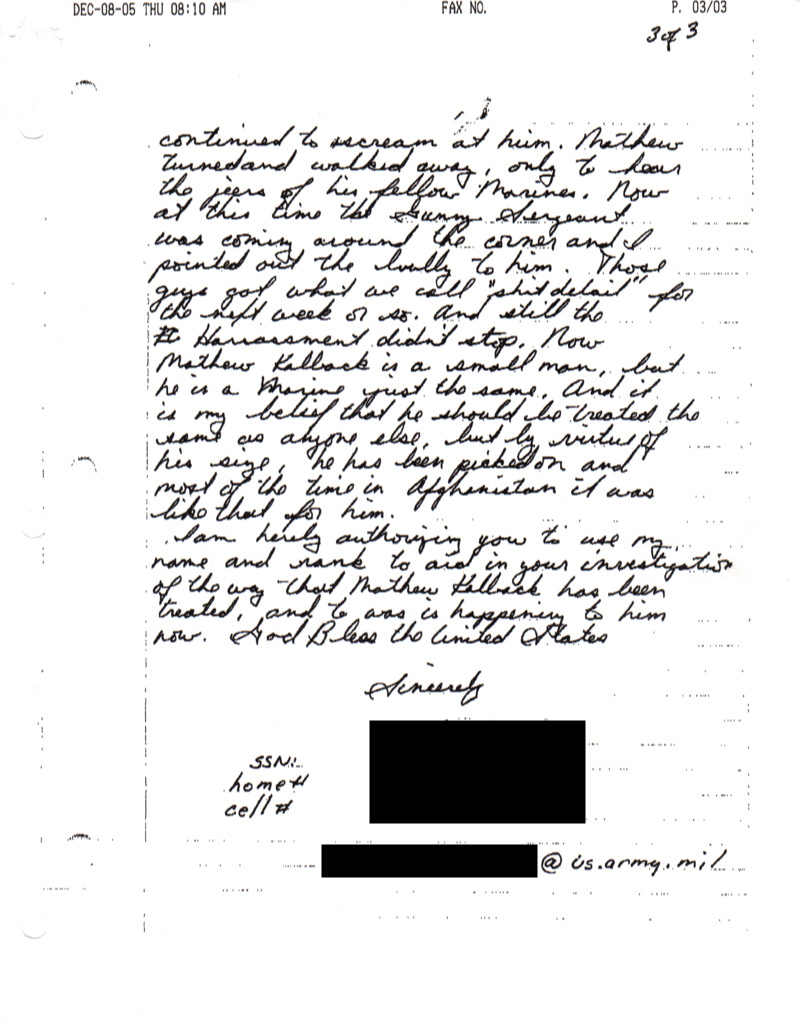 DEC-08-05 THU 08:10 AM FAX NO. P. 03/03
3 of 3
continued to sscream at him. Mathew
turned and walked away, only to hear
the jeers of his fellow Marines. Now
at this time the Gunny Sergeant
was coming around the corner and I
pointed out the bully to him. Those
guys got what we call "shit detail" for
the next week or so. And still the
Harrassment didn't stop. Now
Mathew Kalback is a small man, but
he is a Marine just the same. And it
is my belief that he should be treated the
same as anyone else, but by virtue of
his size, he has been picked on and
most of the time in Afghanistan it was
like that for him.
I am hereby authorizing you to use my
name and rank to aid in your investigation
of the way that Mathew Kalback has been
treated, and to was is happening to him
now. God Bless the United States
Sincerely
SSN:
home #
cell #
@us.army.mil